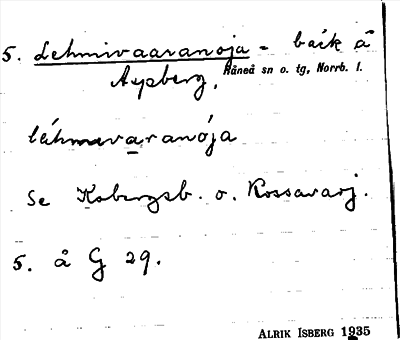 5. Lehmivaaranoja - bäck å
Aypberg, Råneå sn o. tg, Norrb. l.
léhmɩvaranója
Se Kobergsb. o. Kossavarj.
5. å G 29.
ALRIK ISBERG 1935